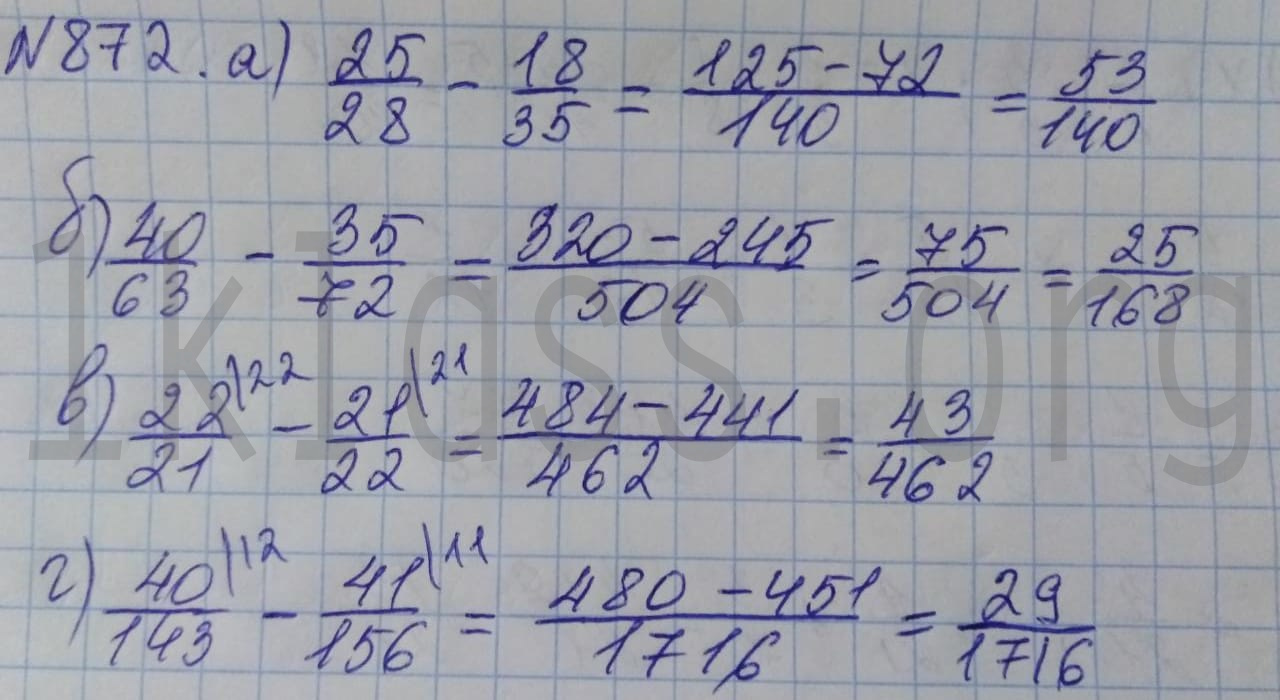 №872. а) 25/28 - 18/35 = 125-72/140 = 53/140
б) 40/63 - 35/72 = 320-245/504 = 75/504 = 25/168
в) 22\22/21 - 21\21/22 = 484-441/462 = 43/462
г) 40\12/143 - 41\11/156 = 480-451/1716 = 29/1716
1klass.org